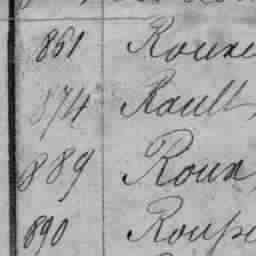 861 Rouxe
874 Rault,
889 Roux,
890 Roupe